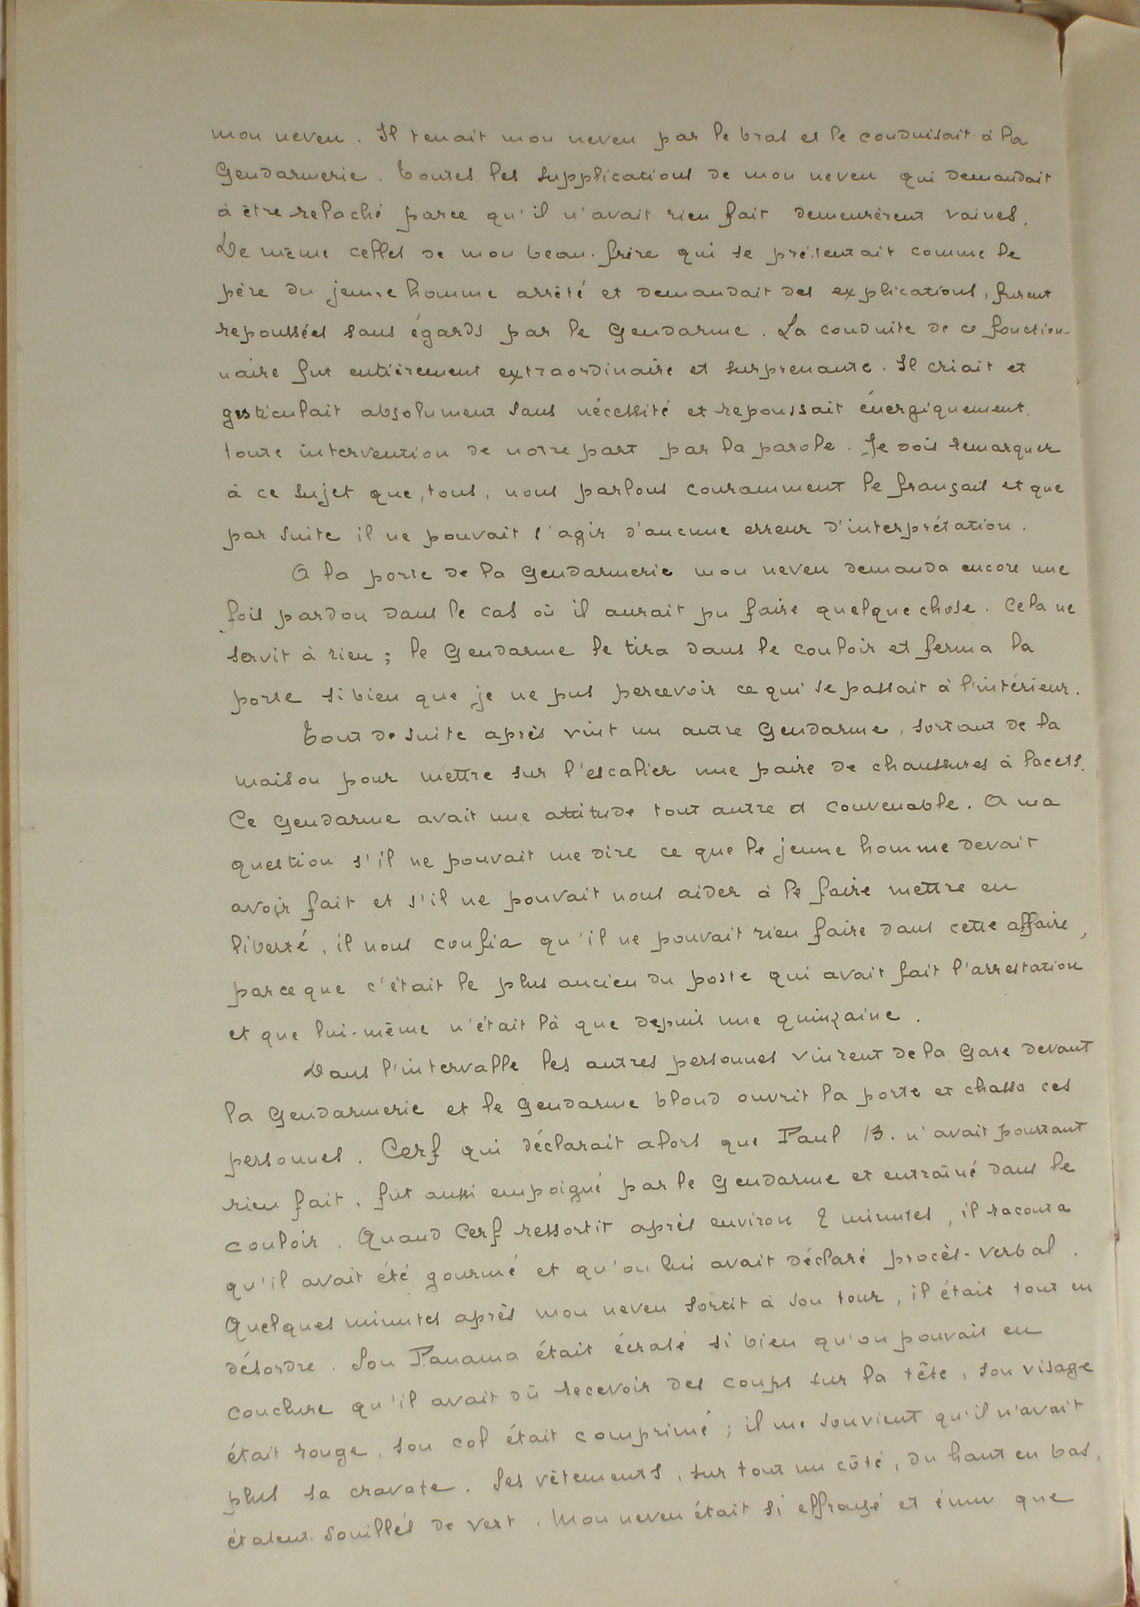 mon neveu. Il tenait mon neveu par le bras et le conduisait à la
Gendarmerie. Toutes les supplications de mon neveu qui demandait
à être relaché parce qu'il n'avait rien fait demeurèrent vaines.
De même celles de mon beau-frère qui se présentait comme le
père du jeune homme arrêté et demandait des explications, furent
repoussées sans égards par le Gendarme. La conduite de ce fonction-
naire fut entièrement extraordinaire et surprenante. Il criait et
gesticulait absolument sans nécessité et repoussait énergiquement
toute intervention de notre part par la parole. Je dois remarquer
à ce sujet que, tous, nous parlons couramment le français et que
par suite il ne pouvait s'agir d'aucune erreur d'interprétation.
A la porte de la Gendarmerie mon neveu demanda encore une
fois pardon dans le cas où il aurait pu faire quelque chose. Cela ne
servit à rien; le Gendarme le tira dans le couloir et ferma la
porte si bien que je ne pus percevoir ce qui se passait à l'intérieur.
Tout de suite après vint un autre Gendarme, sortant de la
maison pour mettre sur l'escalier une paire de chaussures à lacets.
Ce Gendarme avait une attitude tout autre et convenable. A ma
question s'il ne pouvait me dire ce que le jeune homme devait
avoir fait et s'il ne pouvait nous aider à le faire mettre en
liberté, il nous confia qu'il ne pouvait rien faire dans cette affaire,
parce que c'était le plus ancien du poste qui avait fait l'arrestation
et que lui-même n'était là que depuis une quinzaine.
Dans l'intervalle les autres personnes vinrent de la Gare devant
la Gendarmerie et le Gendarme blond ouvrit la porte et chassa ces
personnes. Cerf qui déclarait alors que Paul B. n'avait pourtant
rien fait, fut aussi empoigné par le Gendarme et entraîné dans le
couloir. Quand Cerf ressortit après environ 2 minutes, il raconta
qu'il avait été gourmé et qu'on lui avait déclaré procès-verbal.
Quelques minutes après mon neveu sortit à son tour, il était tout en
désordre. Son Panama était écrasé si bien qu'on pouvait en
conclure qu'il avait dû recevoir des coups sur la tête, son visage
était rouge, son col était comprimé; il me souvient qu'il n'avait
plus sa cravate. Ses vêtements, sur tout un côté, du haut en bas,
étaient souillés de vert. Mon neveu était si effrayé et ému que